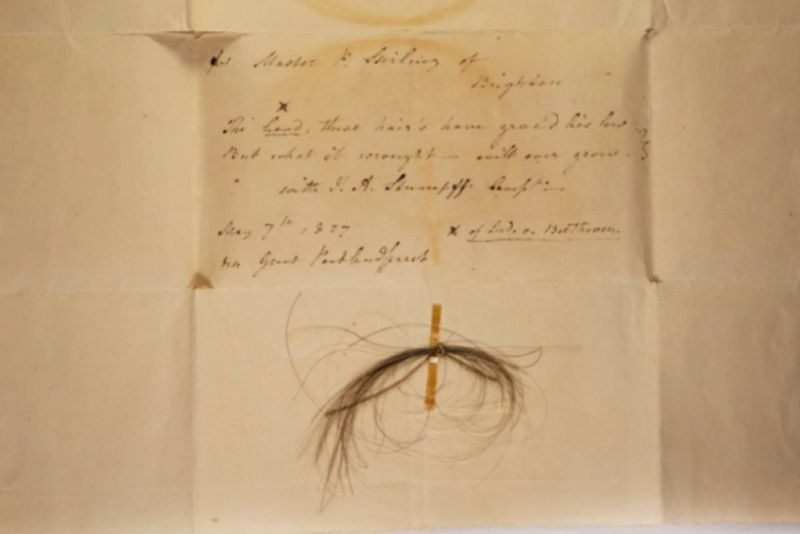 for Master P. Stirling of
Brighton
×
The head, these hair's have grac'd his low
But what it wrought – will ever grow.
with J. A. Stumpff's Compts
May 7th, 1827
× of Lud. v. Beethoven.
Great Portland Street